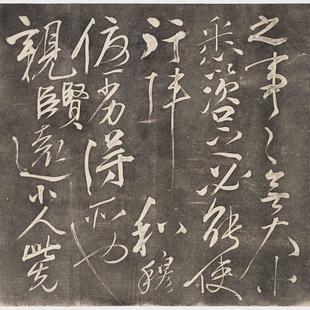 之事〻無大小
悉以咨之必能使
行陣和穆
優劣得所也
親賢遠小人此先